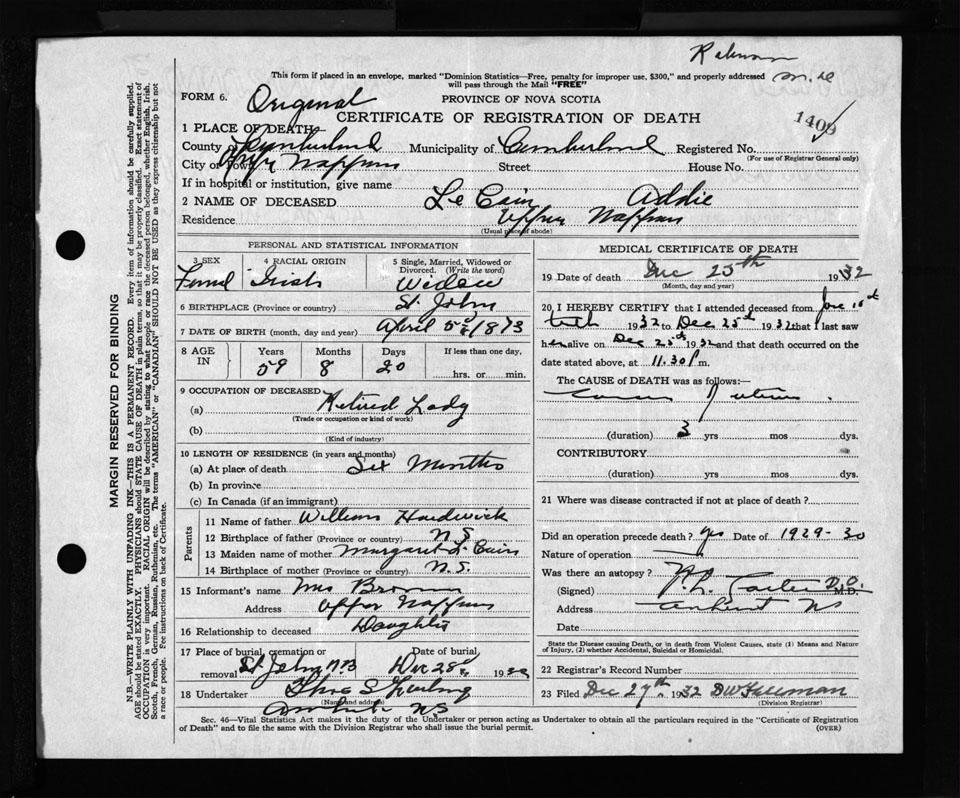 This form if placed in an envelope, marked "Dominion Statistics—Free, penalty for improper use, $300," and properly addressed
will pass through the Mail "FREE"
FORM 6.
Original
PROVINCE OF NOVA SCOTIA
CERTIFICATE OF REGISTRATION OF DEATH
1409
1 PLACE OF DEATH—
County of Cumberland Municipality of Cumberland Registered No.
(For use of Registrar General only)
City or Town Upper Nappan Street House No.
If in hospital or institution, give name
2 NAME OF DECEASED Le Cain Addie
Residence Upper Nappan
(Usual place of abode)
PERSONAL AND STATISTICAL INFORMATION
3 SEX 4 RACIAL ORIGIN 5 Single, Married, Widowed or Divorced. (Write the word)
Irish Widow
6 BIRTHPLACE (Province or country) St. John
7 DATE OF BIRTH (month, day and year) April 5th 1873
8 AGE IN Years Months Days If less than one day,
59 8 20 hrs. or min.
9 OCCUPATION OF DECEASED
(a) Retired Lady
(Trade or occupation or kind of work)
(b)
(Kind of industry)
10 LENGTH OF RESIDENCE (in years and months)
(a) At place of death Six Months
(b) In province
(c) In Canada (if an immigrant)
Parents
11 Name of father William Hardwick
12 Birthplace of father (Province or country) N.S.
13 Maiden name of mother Margaret Le Cain
14 Birthplace of mother (Province or country) N.S.
15 Informant's name Mrs
Address Upper Nappan
16 Relationship to deceased Daughter
17 Place of burial, cremation or removal Date of burial
St John NB Dec 28th 1932
18 Undertaker
(Name and address)
Amherst NS
MEDICAL CERTIFICATE OF DEATH
19 Date of death Dec 25th 1932
(Month, day and year)
20 I HEREBY CERTIFY that I attended deceased from June
1932 to Dec 25th 1932 that I last saw
her alive on Dec 1932 and that death occurred on the
date stated above, at 11.30 P m.
The CAUSE of DEATH was as follows:—
(duration) 3 yrs mos dys.
CONTRIBUTORY
(duration) yrs mos dys.
21 Where was disease contracted if not at place of death?
Did an operation precede death? yes Date of 1929-30
Nature of operation
Was there an autopsy? No
(Signed) M.D.
Address Amherst NS
Date
State the Disease causing Death, or in death from Violent Causes, state (1) Means and Nature
of Injury, (2) whether Accidental, Suicidal or Homicidal.
22 Registrar's Record Number
23 Filed Dec 27th 1932 DW Freeman
(Division Registrar)
Sec. 46—Vital Statistics Act makes it the duty of the Undertaker or person acting as Undertaker to obtain all the particulars required in the "Certificate of Registration
of Death" and to file the same with the Division Registrar who shall issue the burial permit. (OVER)
MARGIN RESERVED FOR BINDING
N.B.—WRITE PLAINLY WITH UNFADING INK—THIS IS A PERMANENT RECORD. Every item of information should be carefully supplied.
AGE should be stated EXACTLY. PHYSICIANS should STATE CAUSE OF DEATH in plain terms, so that it may be properly classified. Exact statement of
OCCUPATION is very important. RACIAL ORIGIN will be described by stating to what people or race the deceased person belonged, whether English, Irish,
Scotch, French, German, Russian, Ruthenian, etc. The terms "AMERICAN" or "CANADIAN" SHOULD NOT BE USED as they express citizenship but not
a race or people. See instructions on back of Certificate.